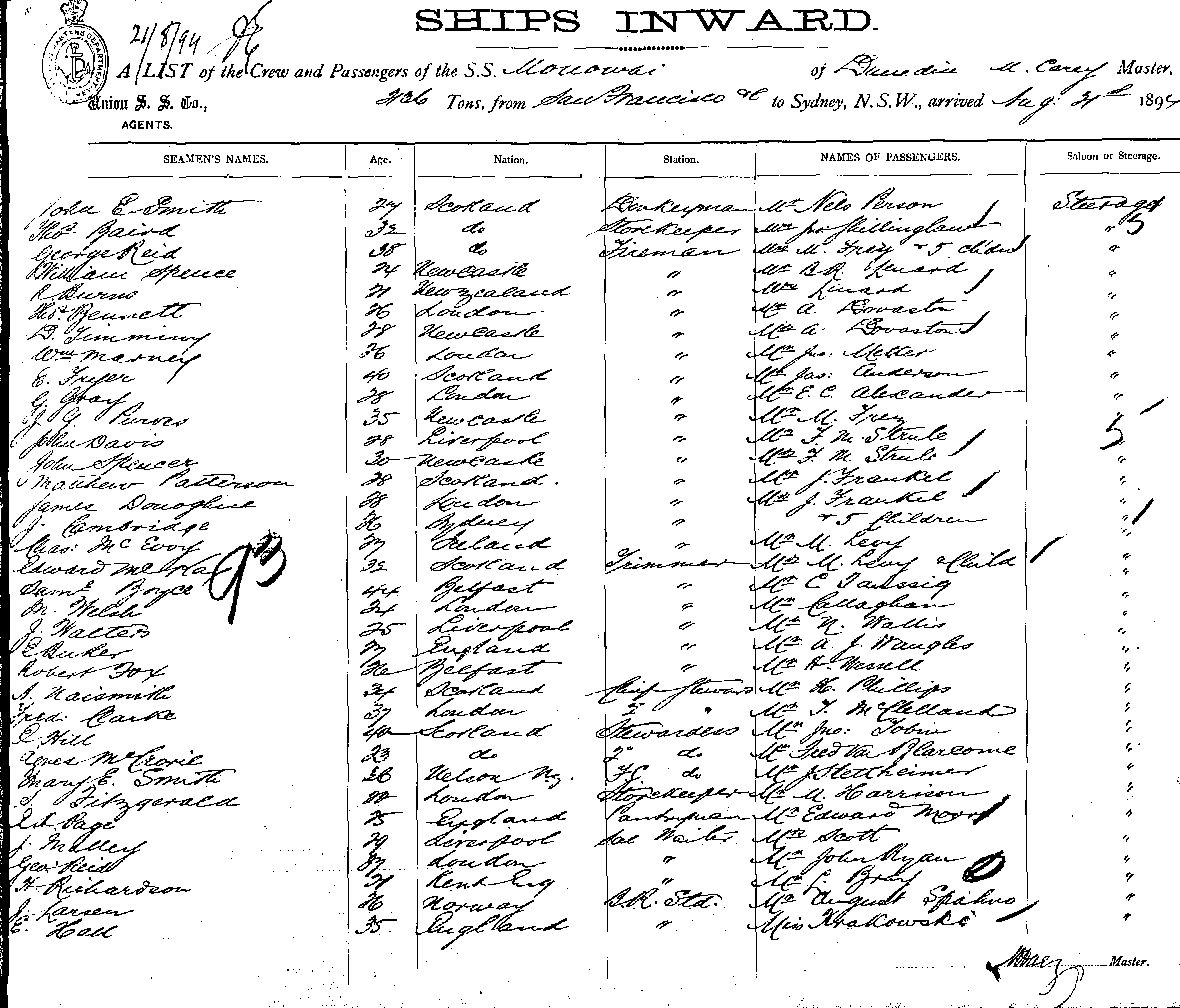 SHIPS INWARD.
21/8/94
A LIST of the Crew and Passengers of the S.S. Monowai of Dunedin M. Carey Master,
Union S. S. Co., Tons, from San Francisco &c to Sydney, N.S.W., arrived Aug: 21st 1894
AGENTS.
SEAMEN'S NAMES. Age. Nation. Station. NAMES OF PASSENGERS. Saloon or Steerage.
John E Smith 27 Scotland Donkeyman Mr Nels Person Steerage
Thos. Baird 32 do Storekeeper Mr Jno Skillingland "
George Reid 38 do Fireman Mrs M. Frey & 5 childn "
William Spence 24 Newcastle " Mr B.R. "
R Burns 21 New Zealand " Mrs "
Thos. Bennett 26 London " Mr A. Lovaston "
D. Timminy 28 Newcastle " Mrs A. Lovaston "
Wm Marney 36 London " Mr Jno. Metter "
E. Fryer 40 Scotland " Mr Jas: Anderson "
G Gray 28 London " Mr E. C. Alexander "
J. G. Purves 35 Newcastle " Mr M. Frey "
John Davis 28 Liverpool " Mr F. M. Struble "
John Spencer 30 Newcastle " Mrs F. M. Struble "
Matthew Patterson 28 Scotland. " Mr J. Frankel "
James Donoghue 28 London " Mrs J. Frankel "
J. Cambridge 26 Sydney " & 5 Children "
Chas: McEvoy 27 Ireland " Mr M. Levy "
Edward 32 Scotland Trimmer Mrs M. Levy & Child "
Saml Boyce 44 Belfast " Mr C Taussig "
M. Welsh 24 London " Mr Callaghan "
J. Walters 25 Liverpool " Mr N. Wallis "
E Buker 27 England " Mr A. J. Waugles "
Robert Fox 36 Belfast " Mr H. "
A. Naismith 34 Scotland Chief Steward Mr H. Phillips "
Fred: Clarke 37 London 2 " Mr T. McClelland "
C Hill 40 Scotland Stewardess Mr Jno: Tobin "
Agnes McCrorie 23 do 2nd do Mr Fred Van Blarcome "
Mary E. Smith 26 Nelson Nz. F.C. do Mr J Stettheimer "
T. Fitzgerald London Storekeeper Mr A Harrison "
Page 25 England Pantryman Mr Edward Moors "
J. Malley 29 Liverpool Sal Waiter Mr Scott "
Geo: Reid London " Mr John Ryan "
H Richardson 21 Kent Eng " Mr L Bray "
J. Larsen 26 Norway B.R. Std. Mr August "
E. Hall 35 England " Miss Krakowski "
93
Master.